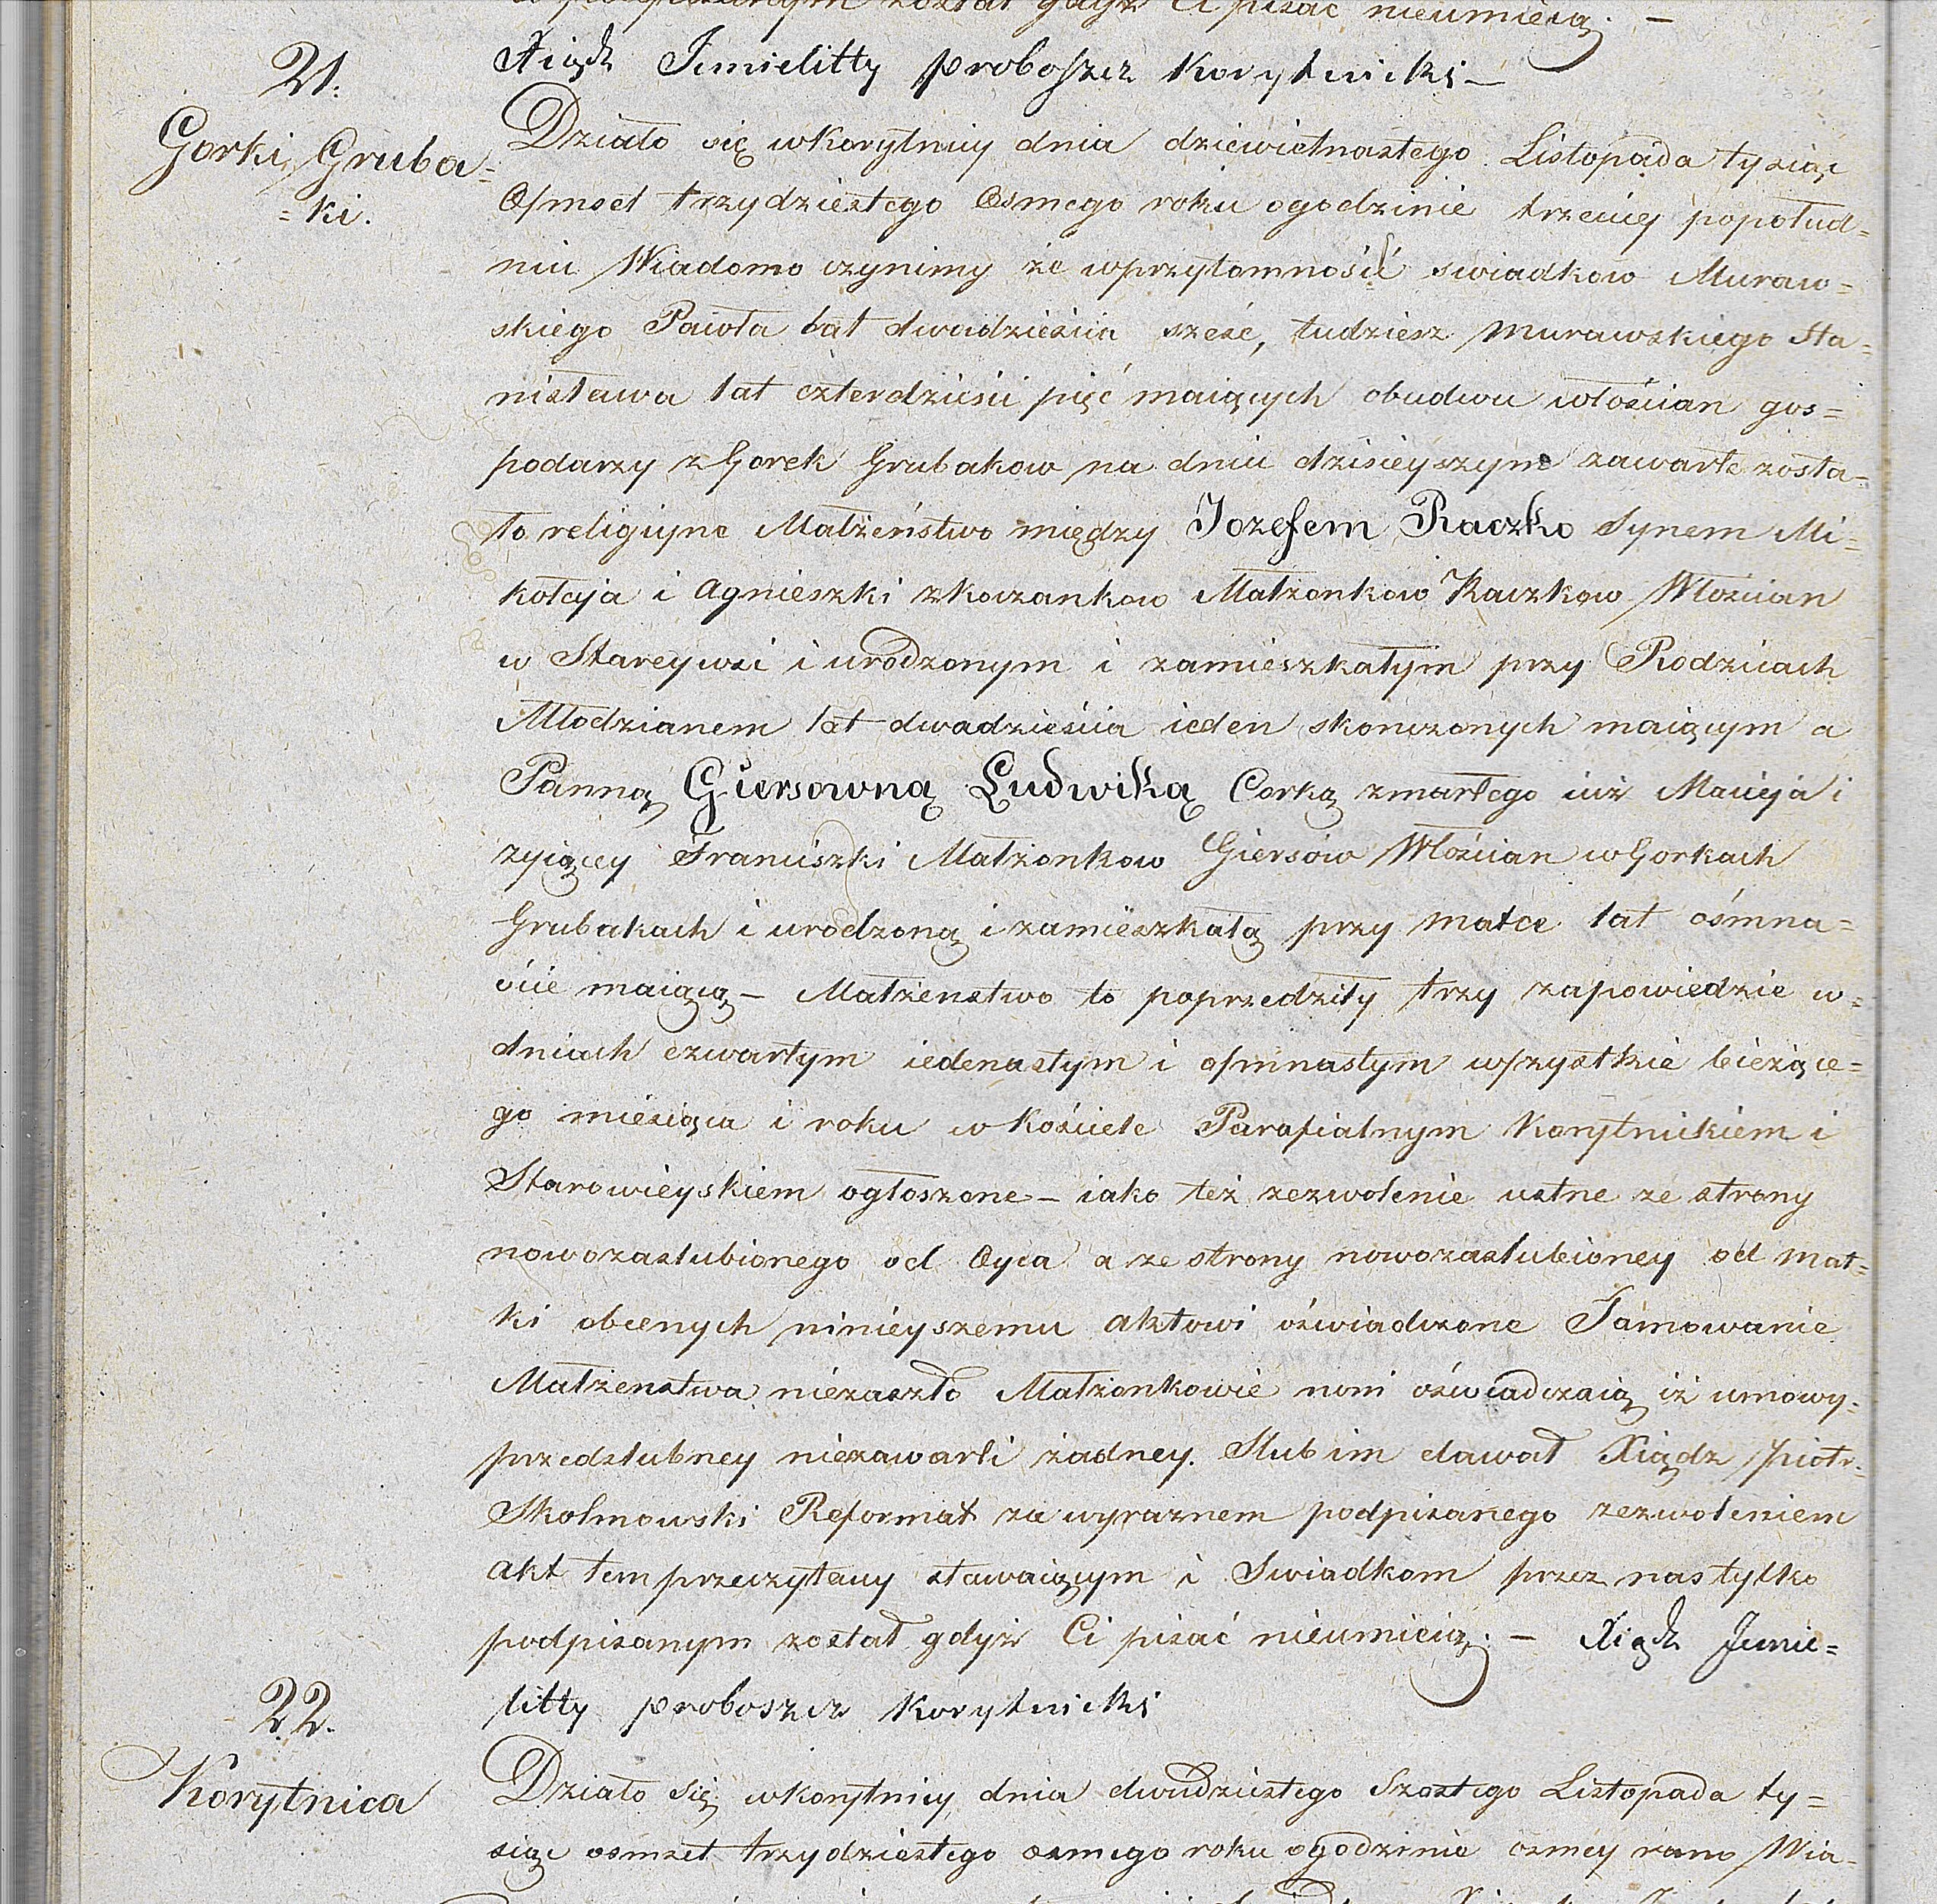 podpisanym został gdyż Ci pisać nieumieią. —
21.
Xiądz Jemielitty proboszcz Korytnicki —
Gorki Gruba=
=ki.
Działo się w Korytnicy dnia dziewietnastego Listopada tysiąc
Osmset trzydziestego Osmego roku ogodzinie trzeciey popołud=
niu Wiadomo czynimy że wprzytomności swiadkow Muraw=
skiego Pawła lat dwadzieścia sześć, tudziesz Murawskiego Sta=
nisława lat czterdzieści pięć maiących obudwu włościan gos=
podarzy z Gorek Grubakow na dniu dzisieyszym zawarte zosta=
ło religiyne Małżeństwo między Jozefem Raczko Synem Mi=
kołaja i Agnieszki z Koczankow Małżonkow Raczkow Włoscian
w Stareywsi i urodzonym i zamieszkałym przy Rodzicach
Młodzianem lat dwadzieścia ieden skonczonych maiącym a
Panną Giersowną Ludwiką Corką zmarłego iuż Macieja i
zyiącey Franciszki Małżonkow Giersów Włościan w Gorkach
Grubakach i urodzoną i zamieszkałą przy Matce lat ośmna=
ście maiącą — Małżenstwo to poprzedziły trzy zapowiedzie w=
dniach czwartym iedenastym i osmnastym wszystkie bieżące=
go miesiąca i roku w Kościele Parafialnym Korytnickiem i
Starowieyskiem ogłoszone — iako też zezwolenie ustne ze strony
nowozaslubionego od Oyca a ze strony nowozaslubioney od Mat=
ki obcenych ninieyszemu aktowi oświadczone Tamowanie
Małżenstwa niezaszło Małżonkowie nowi oświadczaią iż umowy=
przedslubney niezawarli żadney. Slub im dawał Xiądz Piotr=
Skolmowski Reformat za wyraznem podpisanego zezwoleniem
Akt ten przeczytany stawaiącym i Swiadkom przez nas tylko
podpisanym został gdyż Ci pisać nieumieią. — Xiądz Jemie=
litty proboszcz Korytnicki
22.
Korytnica
Działo się w Korytnicy dnia dwudziestego Szostego Listopada ty=
siąc osmset trzydziestego osmego roku ogodzinie osmey rano Wia=